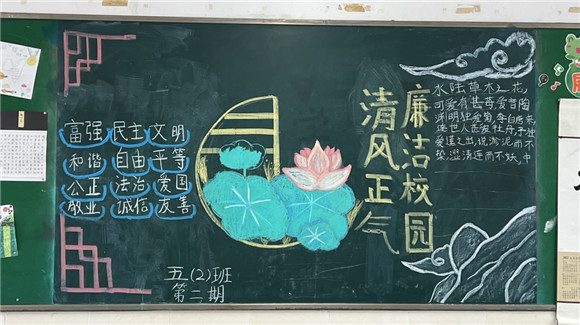 富强 民主 文明
和谐 自由 平等
公正 法治 爱国
敬业 诚信 友善
五(2)班
第二期
廉洁校园
清风正气
水陆草木之花,
可爱者甚蕃 晋陶
渊明独爱菊,李唐来
世人甚爱牡丹,予独
爱莲之出淤泥而不
染,濯清涟而不妖,中